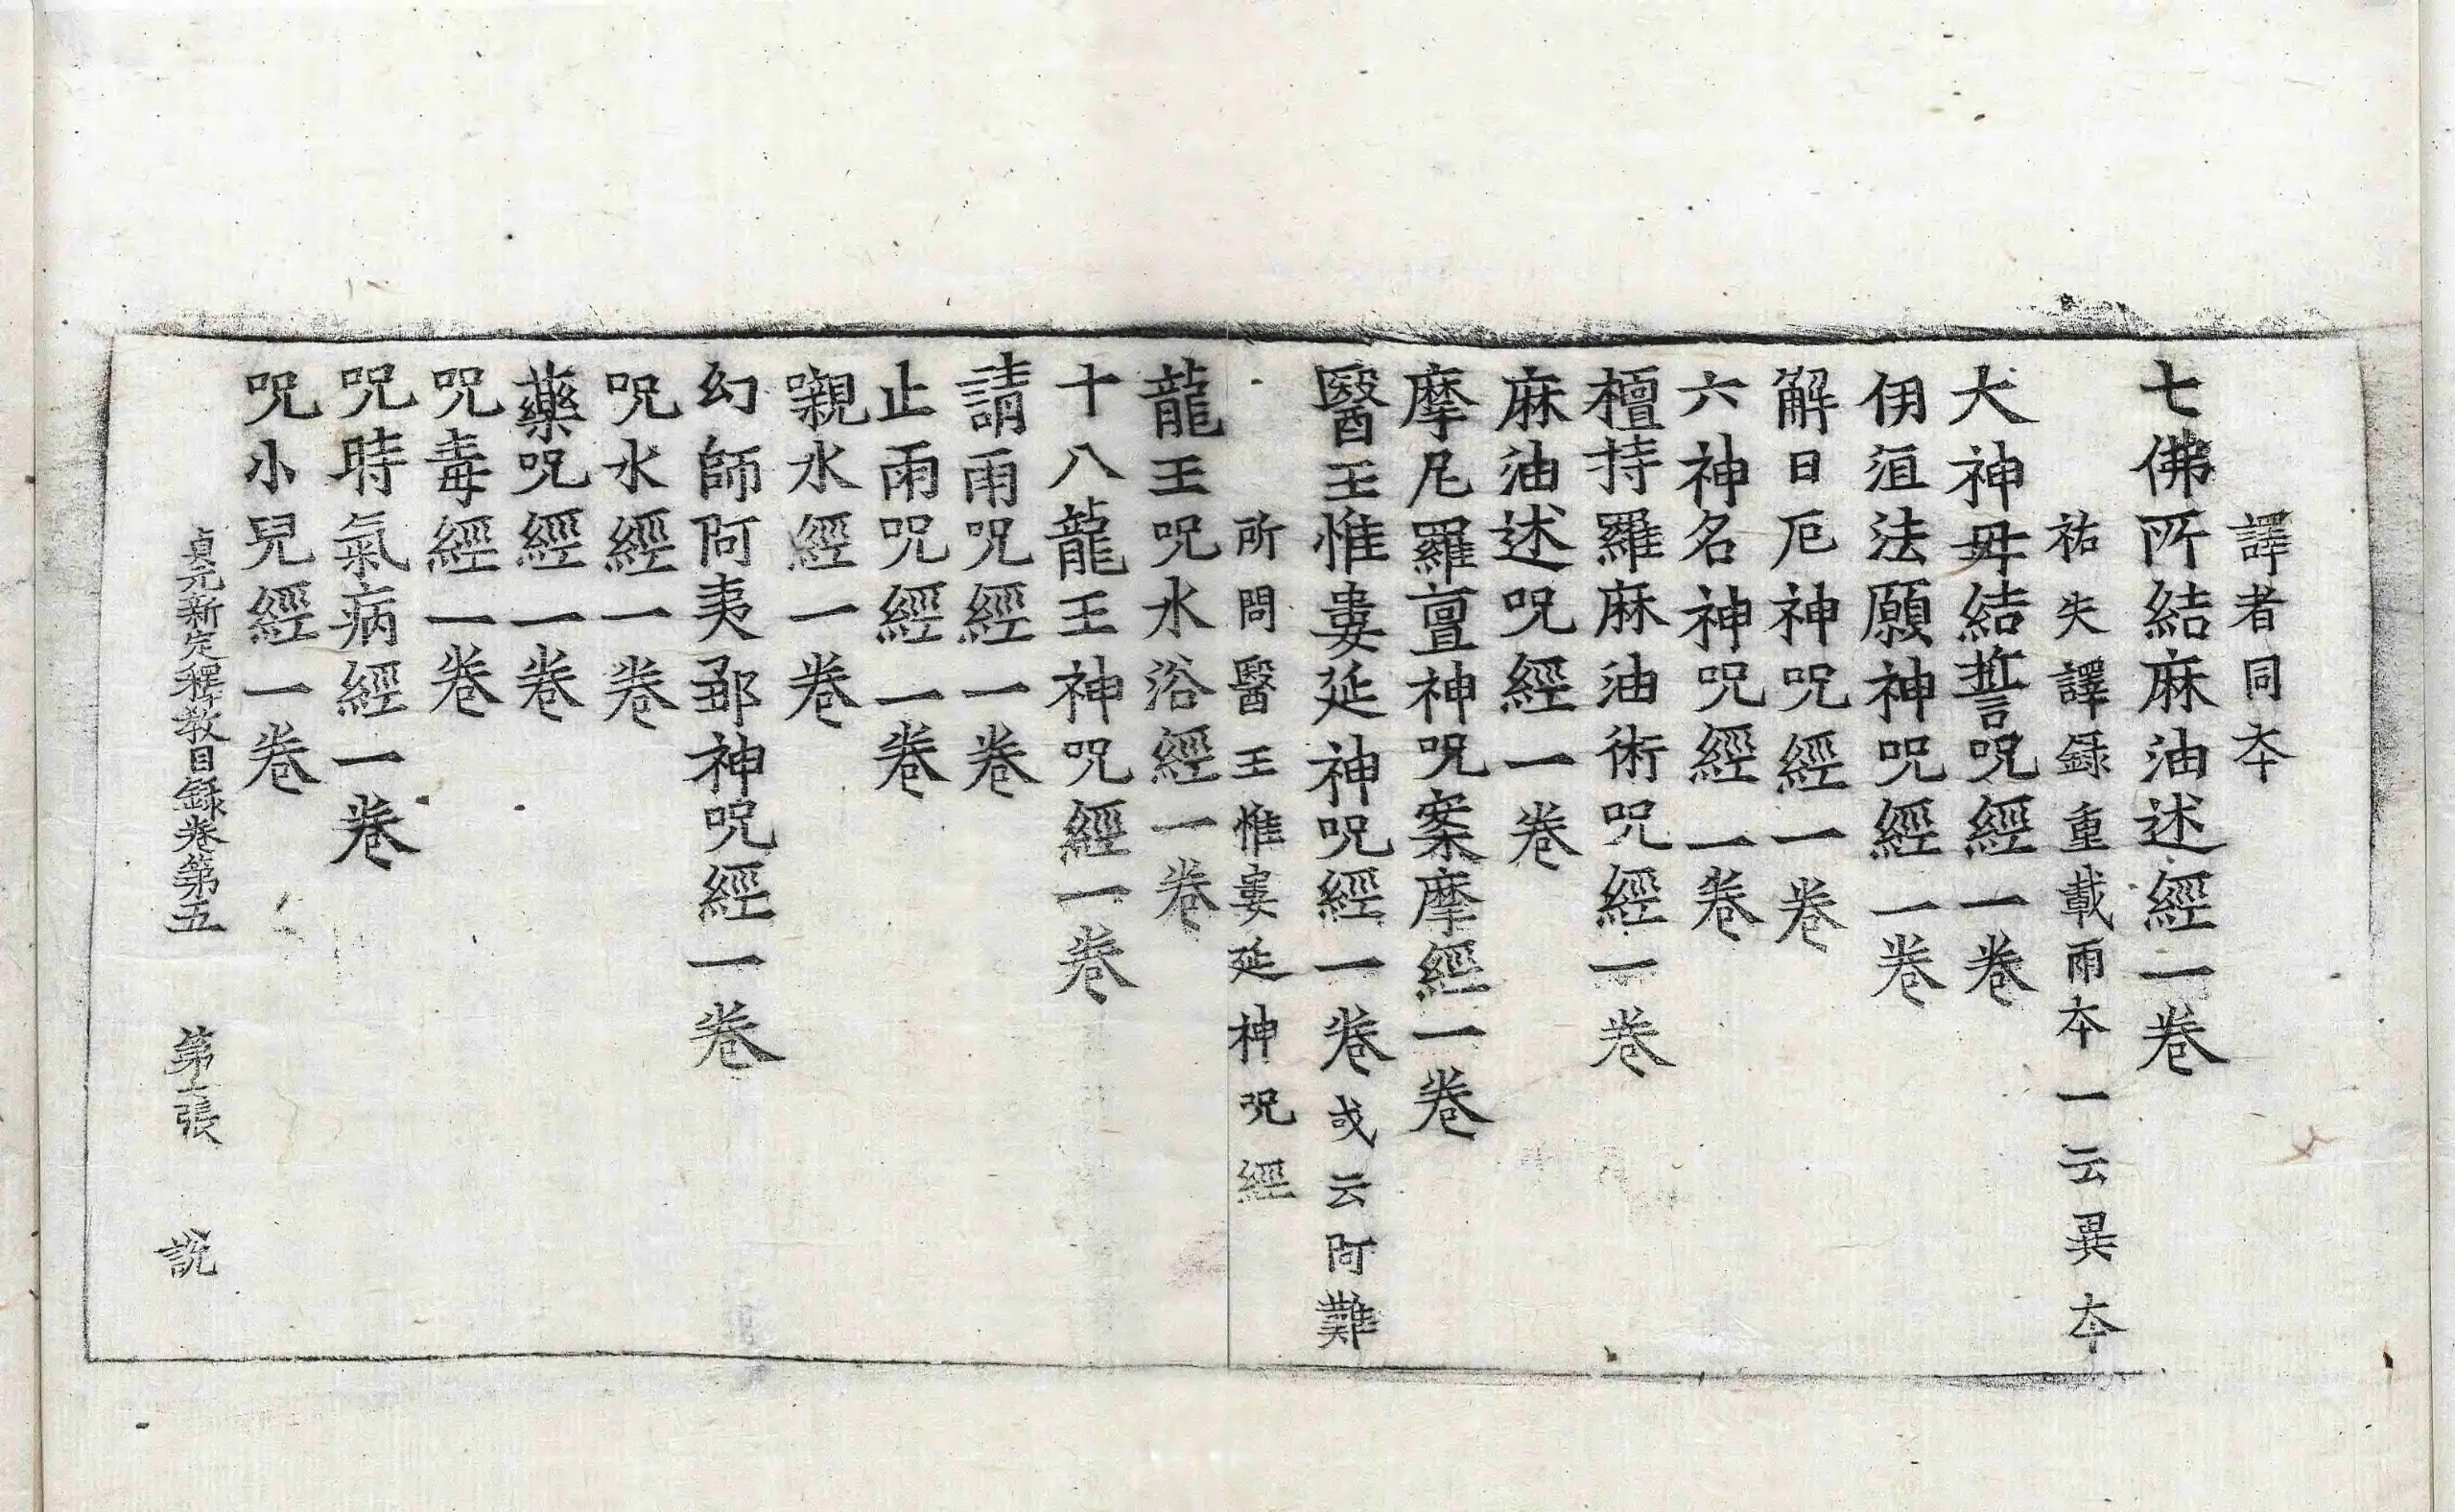 譯者同夲
七佛所結麻油述經一卷
祐失譯錄重載兩夲一云異夲
大神母結誓呪經一卷
伊洹法願神呪經一卷
解日厄神呪經一卷
六神名神呪經一卷
檀持羅麻油術呪經一卷
麻油述呪經一卷
摩尼羅亶神呪案摩經一卷
醫王惟婁延神呪經一卷或云阿難
所問醫王惟婁延神呪經
龍王呪水浴經一卷
十八龍王神呪經一卷
請雨呪經一卷
止雨呪經一卷
嚫水經一卷
幻師阿夷鄒神呪經一卷
呪水經一卷
藥呪經一卷
呪毒經一卷
呪時氣病經一卷
呪小兒經一卷
貞元新定釋教目錄卷第五 第張 説